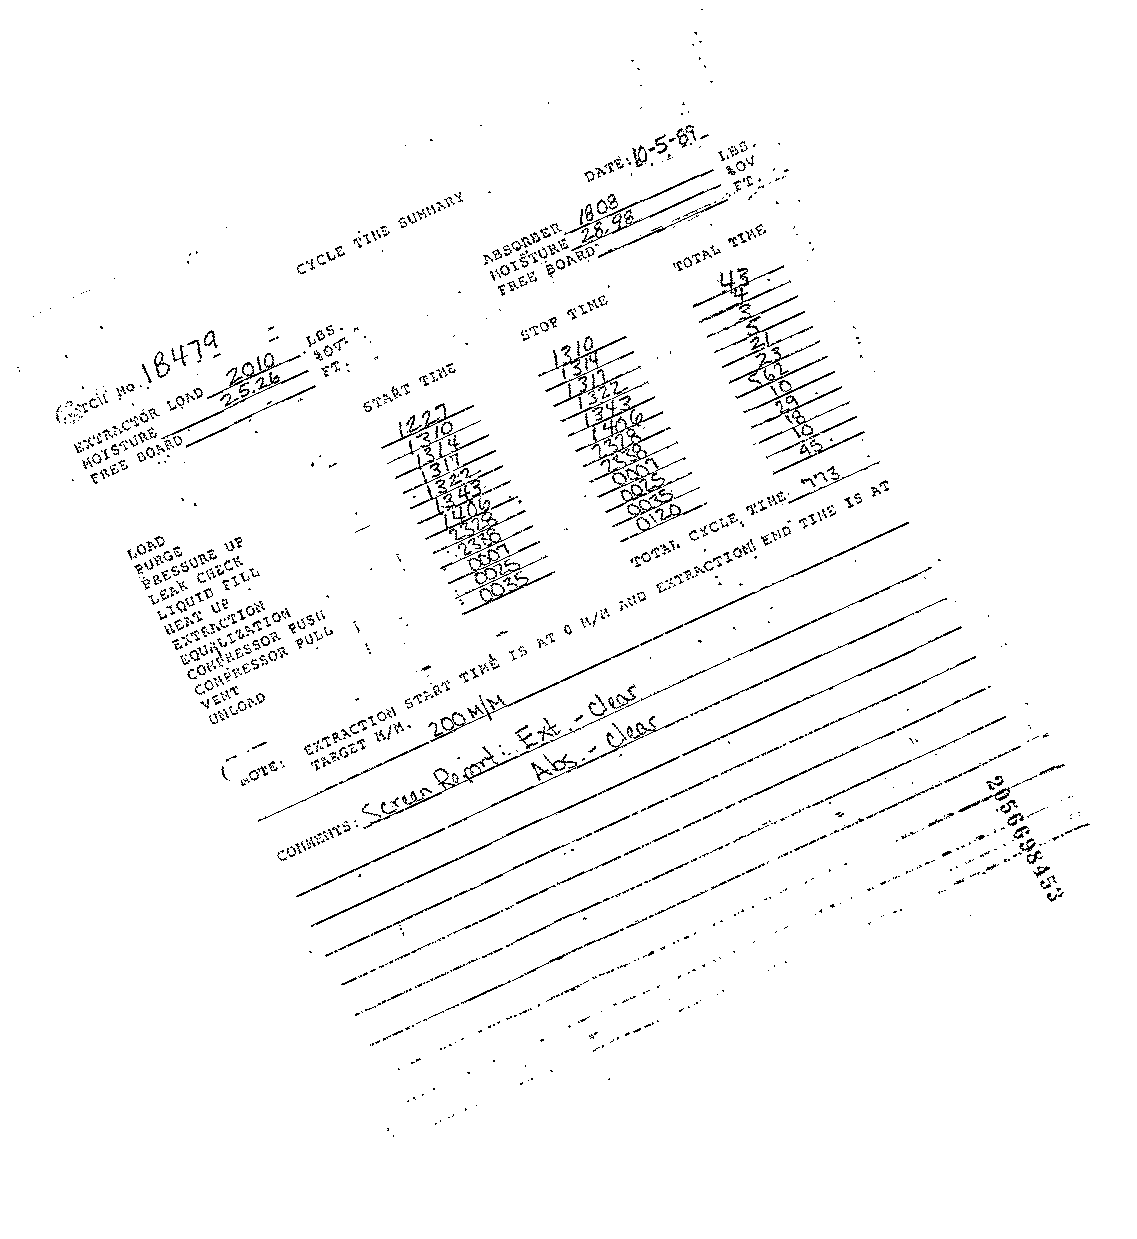 CYCLE TIME SUMMARY
DATE: 10-5-89
BATCH No 18479
EXTRACTOR LOAD 2010 LBS. ABSORBER 1808 LBS.
MOISTURE 25.26 %OV MOISTURE 28.98 %OV
FREE BOARD FT. FREE BOARD FT.
START TIME STOP TIME TOTAL TIME
LOAD 1227 1310 43
PURGE 1310 1314 4
PRESSURE UP 1314 1317 3
LEAK CHECK 1317 1322 5
LIQUID FILL 1322 1343 21
HEAT UP 1343 1406 23
EXTRACTION 1406 2328 562
EQUALIZATION 2328 2338 10
COMPRESSOR PUSH 2338 0007 29
COMPRESSOR PULL 0007 0025 18
VENT 0025 0035 10
UNLOAD 0035 0120 45
TOTAL CYCLE TIME: 773
NOTE: EXTRACTION START TIME IS AT 0 M/M AND EXTRACTION END TIME IS AT
TARGET M/M. 200 M/M
COMMENTS: Screen Report: Ext. - Clear
Abs. - Clear
2056698453